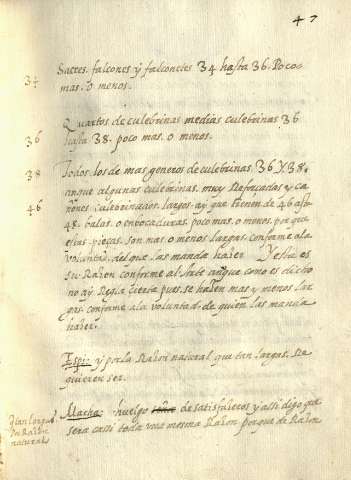 47
Sacres. falcones y falconetes 34 hasta 36. Poco
mas. o menos.
34
Quartos de culebrinas medias culebrinas 36
hasta 38. poco mas. o menos.
36
Todos los de mas generos de culebrinas. 36 y 38.
38
anque algunas culebrinas. muy Reforcadas y ca
ñones culebrinados. largos. ay que tienen de 46 a
46
48. balas. o enbocaduras. poco mas. o menos. porque
estas pieças. son mas. o menos largas. conforme a la
voluntad. del que. las manda hazer. Y esta es
su Razon conforme al arte anque como es dicho
no ay Regla cierta pues. se hazen mas y menos lar
gas. conforme a la voluntad. de quien las manda
hazer.
Espi: y por la Razon natural que tan largas. Re
quieren ser.
Macha: huelgo de satisfazeros y assi digo que
quan largas
sera cassi toda una mesma Razon porque de Razon
por Razon
natural